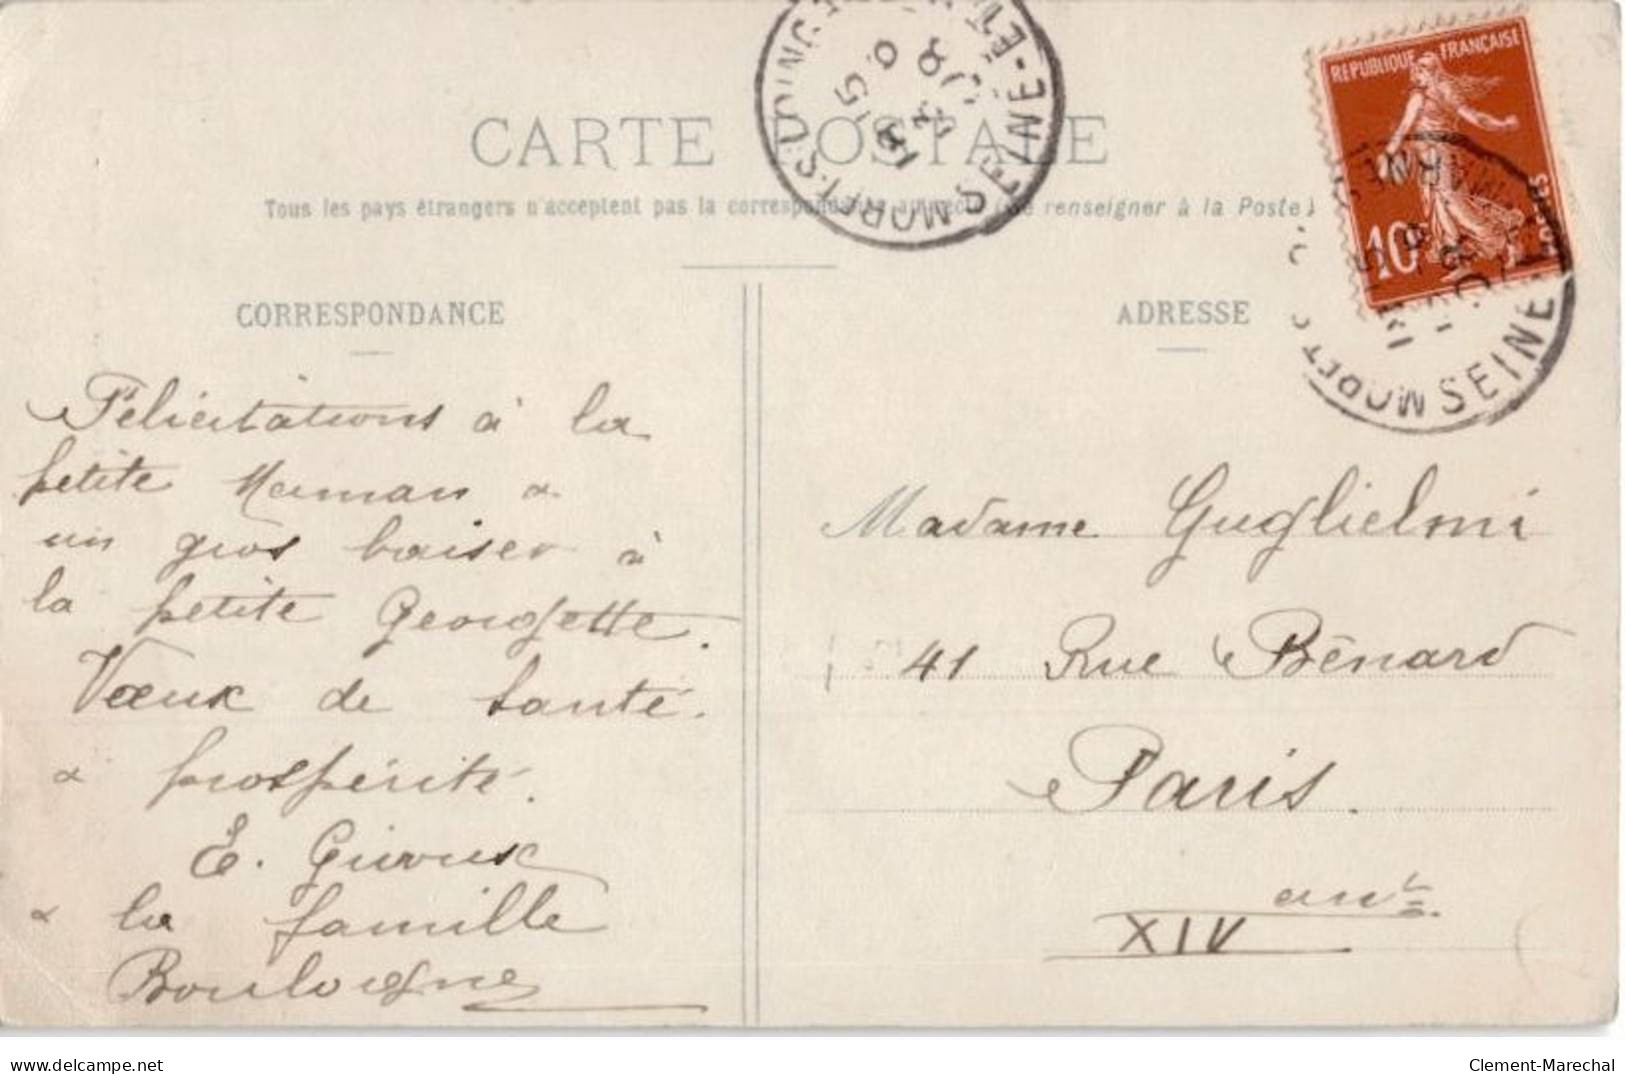 CARTE POSTALE
Tous les pays étrangers n'acceptent pas la correspondance renseigner à la Poste)
RÉPUBLIQUE FRANÇAISE
10
POSTES
SEINE-ET-
SEINE
CORRESPONDANCE
ADRESSE
Félicitations à la
petite Maman &
un gros baiser à
la petite Georgette.
Vœux de santé.
& prospérité.
E.
& la famille
Boulogne
Madame Guglielmi
41 Rue Bénard
Paris.
XIV
delcampe.net
Clement-Marechal